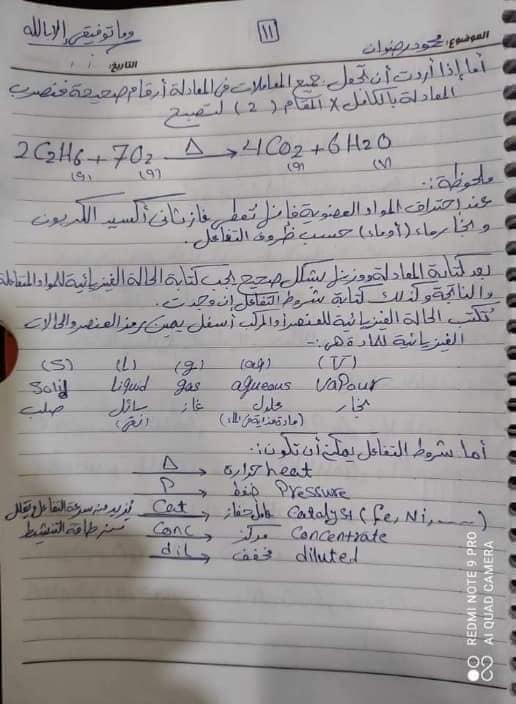 وما توفيقي إلا بالله
١١
الموضوع: محمود رضوان
التاريخ:
أما إذا أردت أن تجعل جميع المعاملات في المعادلة أرقام صحيحة فنضرب
المعادلة بالكامل × المقام (2) لتصبح
2C2H6 + 7O2 Δ→ 4CO2 + 6H2O
(g) (g) (g) (V)
ملحوظة:.
عند إحتراق المواد العضوية فإنها تعطي غاز ثاني أكسيد الكربون
وبخار ماء (أو ماء) حسب ظروف التفاعل.
بعد كتابة المعادلة ووزنها بشكل صحيح يجب كتابة الحالة الفيزيائية للمواد المتفاعلة
والناتجة وكذلك كتابة شروط التفاعل إن وجدت.
تكتب الحالة الفيزيائية للعنصر أو المركب أسفل يمين رمز العنصر والحالات
الفيزيائية للمادة هي:-
(S) (L) (g) (aq) (V)
Solid liquid gas aqueous vapour
صلب سائل غاز محلول بخار
(نقي) (مادة مذابة في الماء)
أما شروط التفاعل يمكن أن تكون:.
Δ→ حرارة heat
P→ ضغط Pressure
Cat→ عامل حفاز Catalyst (fe, Ni, ---) يزيد من سرعة التفاعل ويقلل
Conc→ مركز Concentrate من طاقة التنشيط
dil→ مخفف diluted
REDMI NOTE 9 PRO
AI QUAD CAMERA